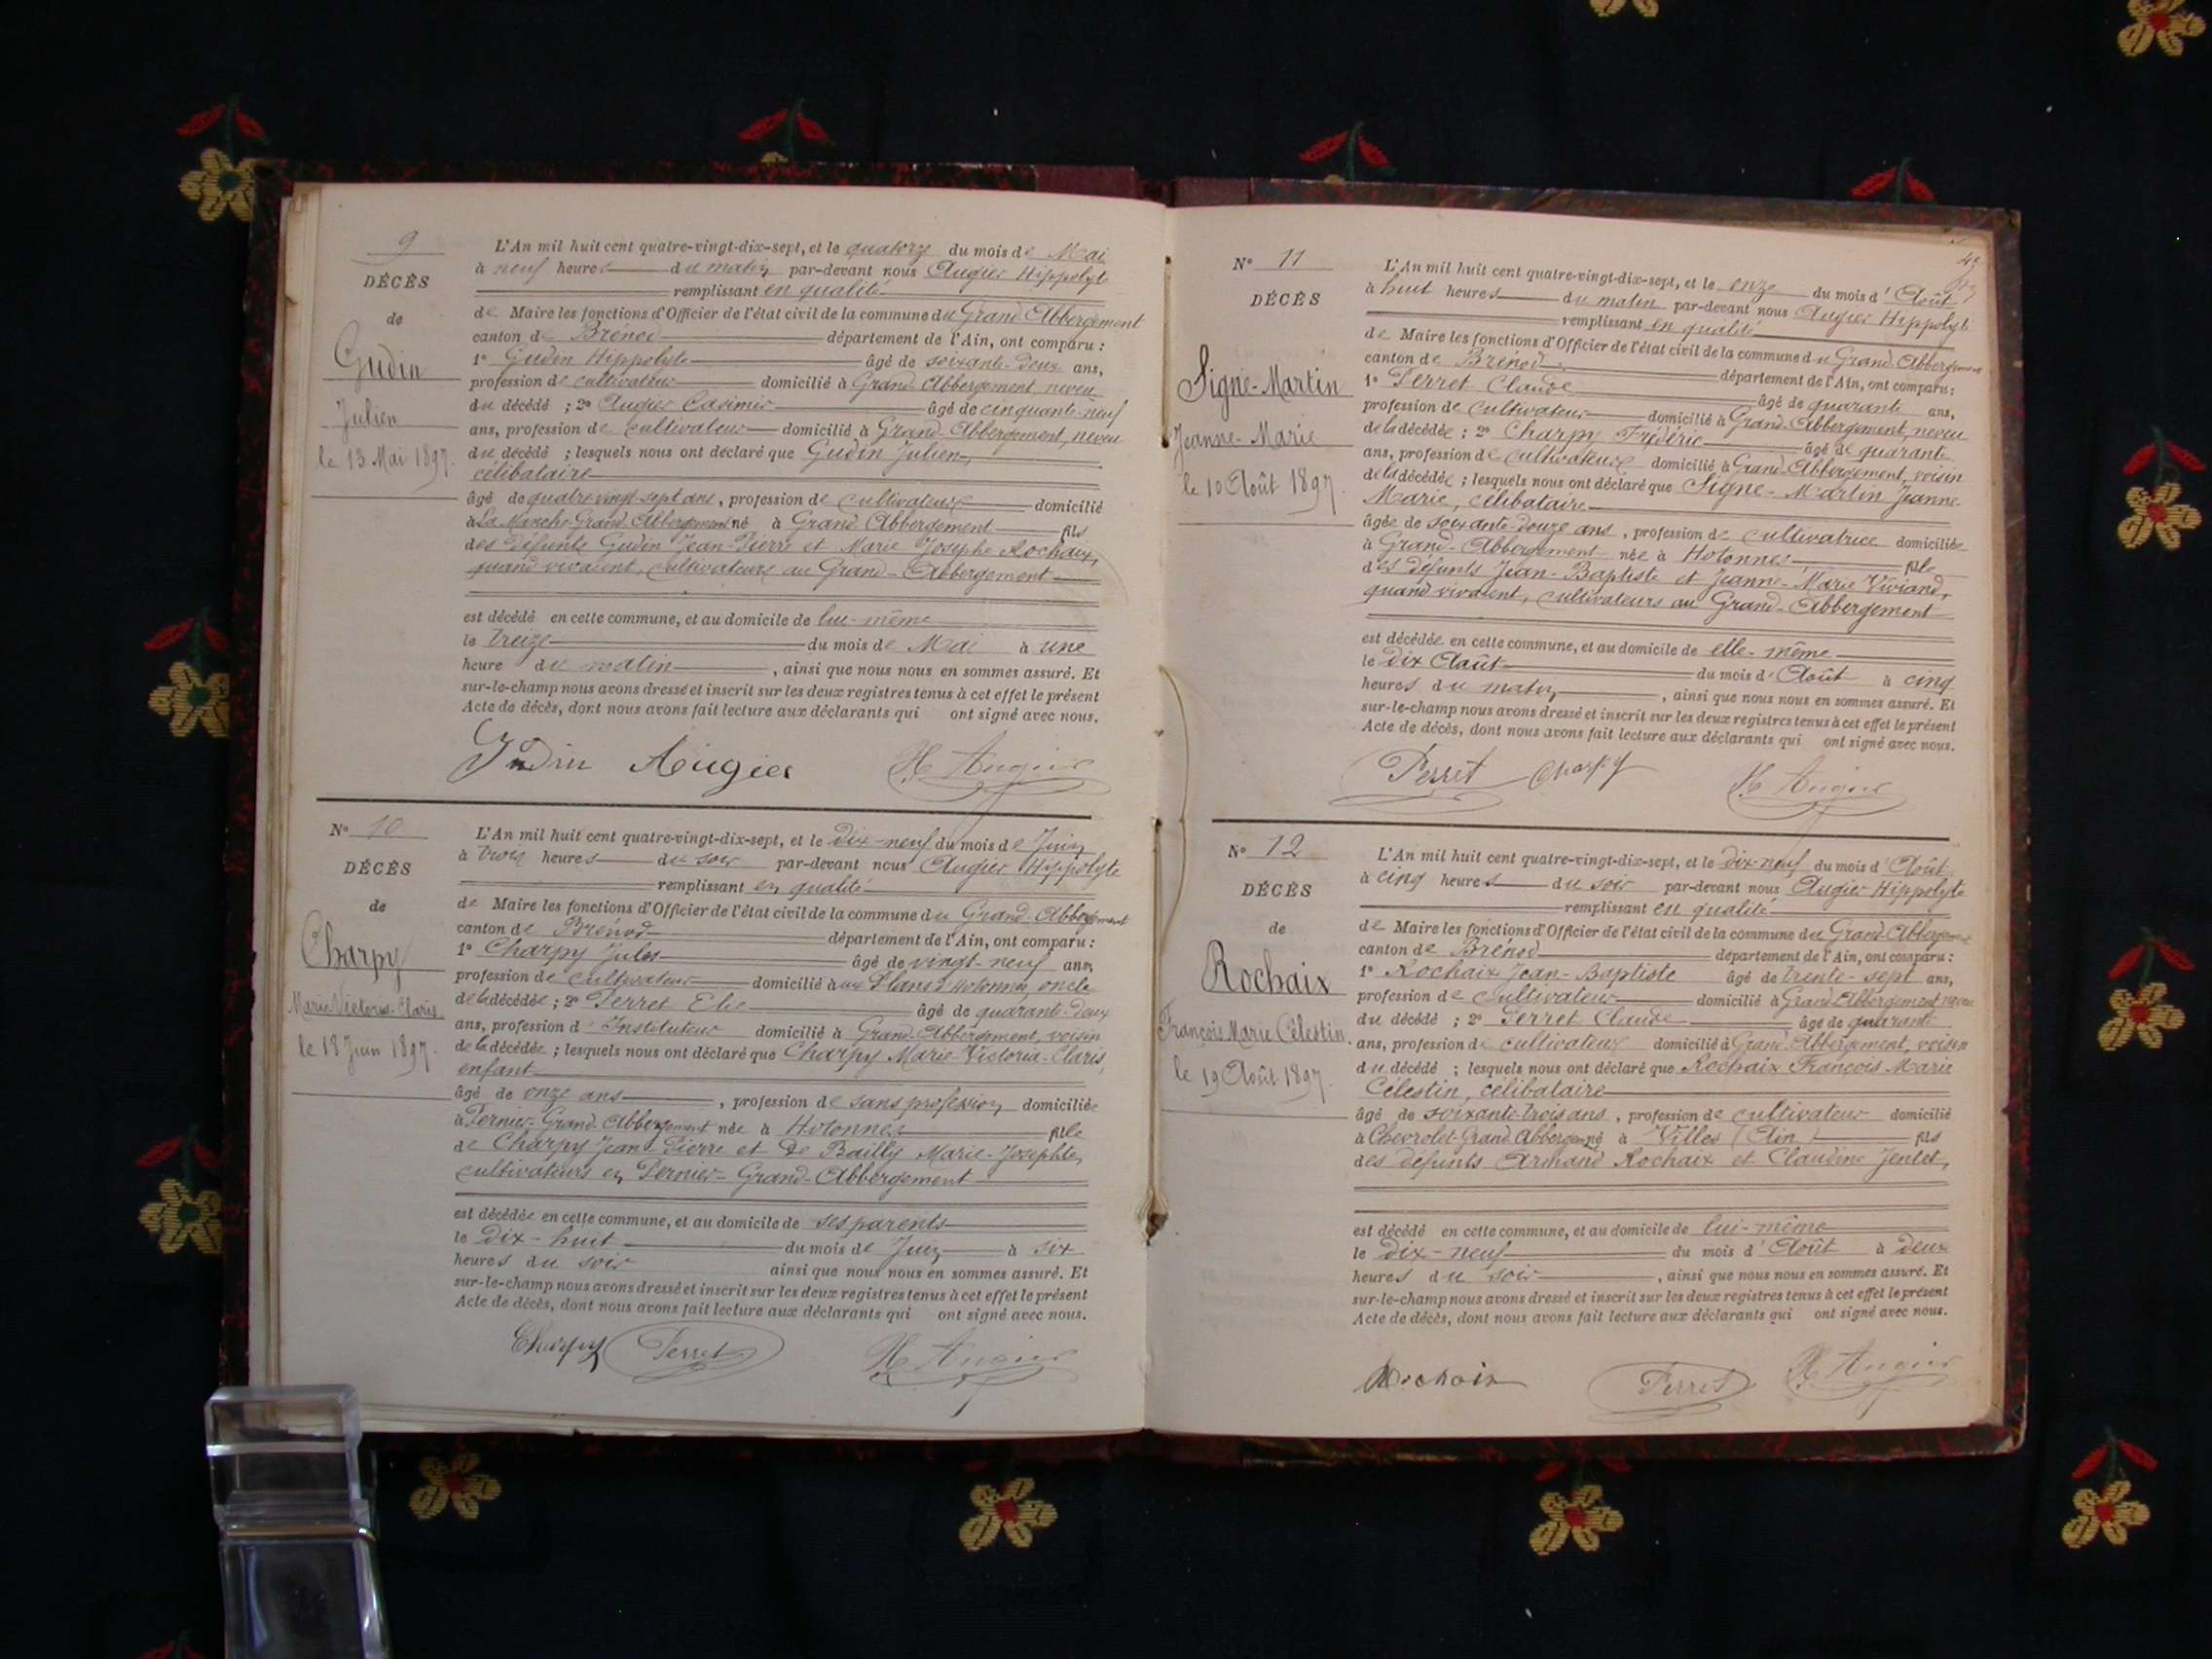 9
DÉCÈS
de
Gudin
Julien
le 13 Mai 1897.
L'An mil huit cent quatre-vingt-dix-sept, et le quatorze du mois de Mai
à neuf heures du matin par-devant nous Augier Hippolyte
remplissant en qualité
de Maire les fonctions d'Officier de l'état civil de la commune du Grand Abbergement
canton de Brénod département de l'Ain, ont comparu :
1º Gudin Hippolyte âgé de soixante-deux ans,
profession de cultivateur domicilié à Grand-Abbergement, neveu
du décédé ; 2º Augier Casimir âgé de cinquante-neuf
ans, profession de cultivateur domicilié à Grand-Abbergement, neveu
du décédé ; lesquels nous ont déclaré que Gudin Julien,
célibataire
âgé de quatre-vingt-sept ans, profession de cultivateur domicilié
à La Manche-Grand-Abbergement né à Grand Abbergement fils
des défunts Gudin Jean-Pierre et Marie Josephe Rochaix,
quand vivaient, cultivateurs au Grand-Abbergement
est décédé en cette commune, et au domicile de lui-même
le treize du mois de Mai à une
heure du matin, ainsi que nous nous en sommes assuré. Et
sur-le-champ nous avons dressé et inscrit sur les deux registres tenus à cet effet le présent
Acte de décès, dont nous avons fait lecture aux déclarants qui ont signé avec nous.
Gudin Augier H Augier
Nº 10
DÉCÈS
de
Charpy
Marie Victoria-Claris
le 18 Juin 1897.
L'An mil huit cent quatre-vingt-dix-sept, et le dix-neuf du mois de Juin
à trois heures du soir par-devant nous Augier Hippolyte
remplissant en qualité
de Maire les fonctions d'Officier de l'état civil de la commune du Grand-Abbergement
canton de Brénod département de l'Ain, ont comparu :
1º Charpy Jules âgé de vingt-neuf ans,
profession de cultivateur domicilié aux Plans d'Hotonnes, oncle
de la décédée ; 2º Perret Elie âgé de quarante-deux
ans, profession d'Instituteur domicilié à Grand-Abbergement, voisin
de la décédée ; lesquels nous ont déclaré que Charpy Marie-Victoria-Claris,
enfant
âgé de onze ans, profession de sans profession domiciliée
à Pernier-Grand-Abbergement née à Hotonnes fille
de Charpy Jean-Pierre et de Bailly Marie-Josephte,
cultivateurs en Pernier-Grand-Abbergement
est décédée en cette commune, et au domicile de ses parents
le dix-huit du mois de Juin à six
heures du soir ainsi que nous nous en sommes assuré. Et
sur-le-champ nous avons dressé et inscrit sur les deux registres tenus à cet effet le présent
Acte de décès, dont nous avons fait lecture aux déclarants qui ont signé avec nous.
Charpy Perret H Augier
Nº 11
DÉCÈS
Signe-Martin
Jeanne-Marie
le 10 Août 1897.
L'An mil huit cent quatre-vingt-dix-sept, et le onze du mois d'Août
à huit heures du matin par-devant nous Augier Hippolyte
remplissant en qualité
de Maire les fonctions d'Officier de l'état civil de la commune du Grand-Abbergement
canton de Brénod département de l'Ain, ont comparu :
1º Perret Claude âgé de quarante ans,
profession de cultivateur domicilié à Grand-Abbergement, neveu
de la décédée ; 2º Charpy Frédéric âgé de quarante
ans, profession de cultivateur domicilié à Grand-Abbergement, voisin
de la décédée ; lesquels nous ont déclaré que Signe-Martin Jeanne-
Marie, célibataire
âgée de soixante-douze ans, profession de cultivatrice domiciliée
à Grand-Abbergement née à Hotonnes fille
des défunts Jean-Baptiste et Jeanne-Marie Viviand,
quand vivaient, cultivateurs au Grand-Abbergement
est décédée en cette commune, et au domicile de elle-même
le dix Août du mois d'Août à cinq
heures du matin, ainsi que nous nous en sommes assuré. Et
sur-le-champ nous avons dressé et inscrit sur les deux registres tenus à cet effet le présent
Acte de décès, dont nous avons fait lecture aux déclarants qui ont signé avec nous.
Perret Charpy H Augier
Nº 12
DÉCÈS
de
Rochaix
François Marie Célestin.
le 19 Août 1897.
L'An mil huit cent quatre-vingt-dix-sept, et le dix-neuf du mois d'Août
à cinq heures du soir par-devant nous Augier Hippolyte
remplissant en qualité
de Maire les fonctions d'Officier de l'état civil de la commune du Grand-Abbergement
canton de Brénod département de l'Ain, ont comparu :
1º Rochaix Jean-Baptiste âgé de trente-sept ans,
profession de cultivateur domicilié à Grand-Abbergement neveu
du décédé ; 2º Perret Claude âgé de quarante
ans, profession de cultivateur domicilié à Grand-Abbergement, voisin
du décédé ; lesquels nous ont déclaré que Rochaix François Marie
Célestin, célibataire
âgé de soixante-trois ans, profession de cultivateur domicilié
à Chevrolet-Grand-Abbergement né à Villes (Ain) fils
des défunts Armand Rochaix et Claudine Jentet,
est décédé en cette commune, et au domicile de lui-même
le dix-neuf du mois d'Août à deux
heures du soir, ainsi que nous nous en sommes assuré. Et
sur-le-champ nous avons dressé et inscrit sur les deux registres tenus à cet effet le présent
Acte de décès, dont nous avons fait lecture aux déclarants qui ont signé avec nous.
Rochaix Perret H Augier